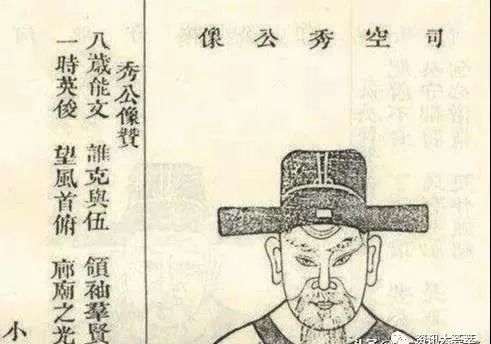 司空秀公像
秀公像贊
八歲能文 誰克與伍 領袖羣賢
一時英俊 望風首俯 廊廟之光
小